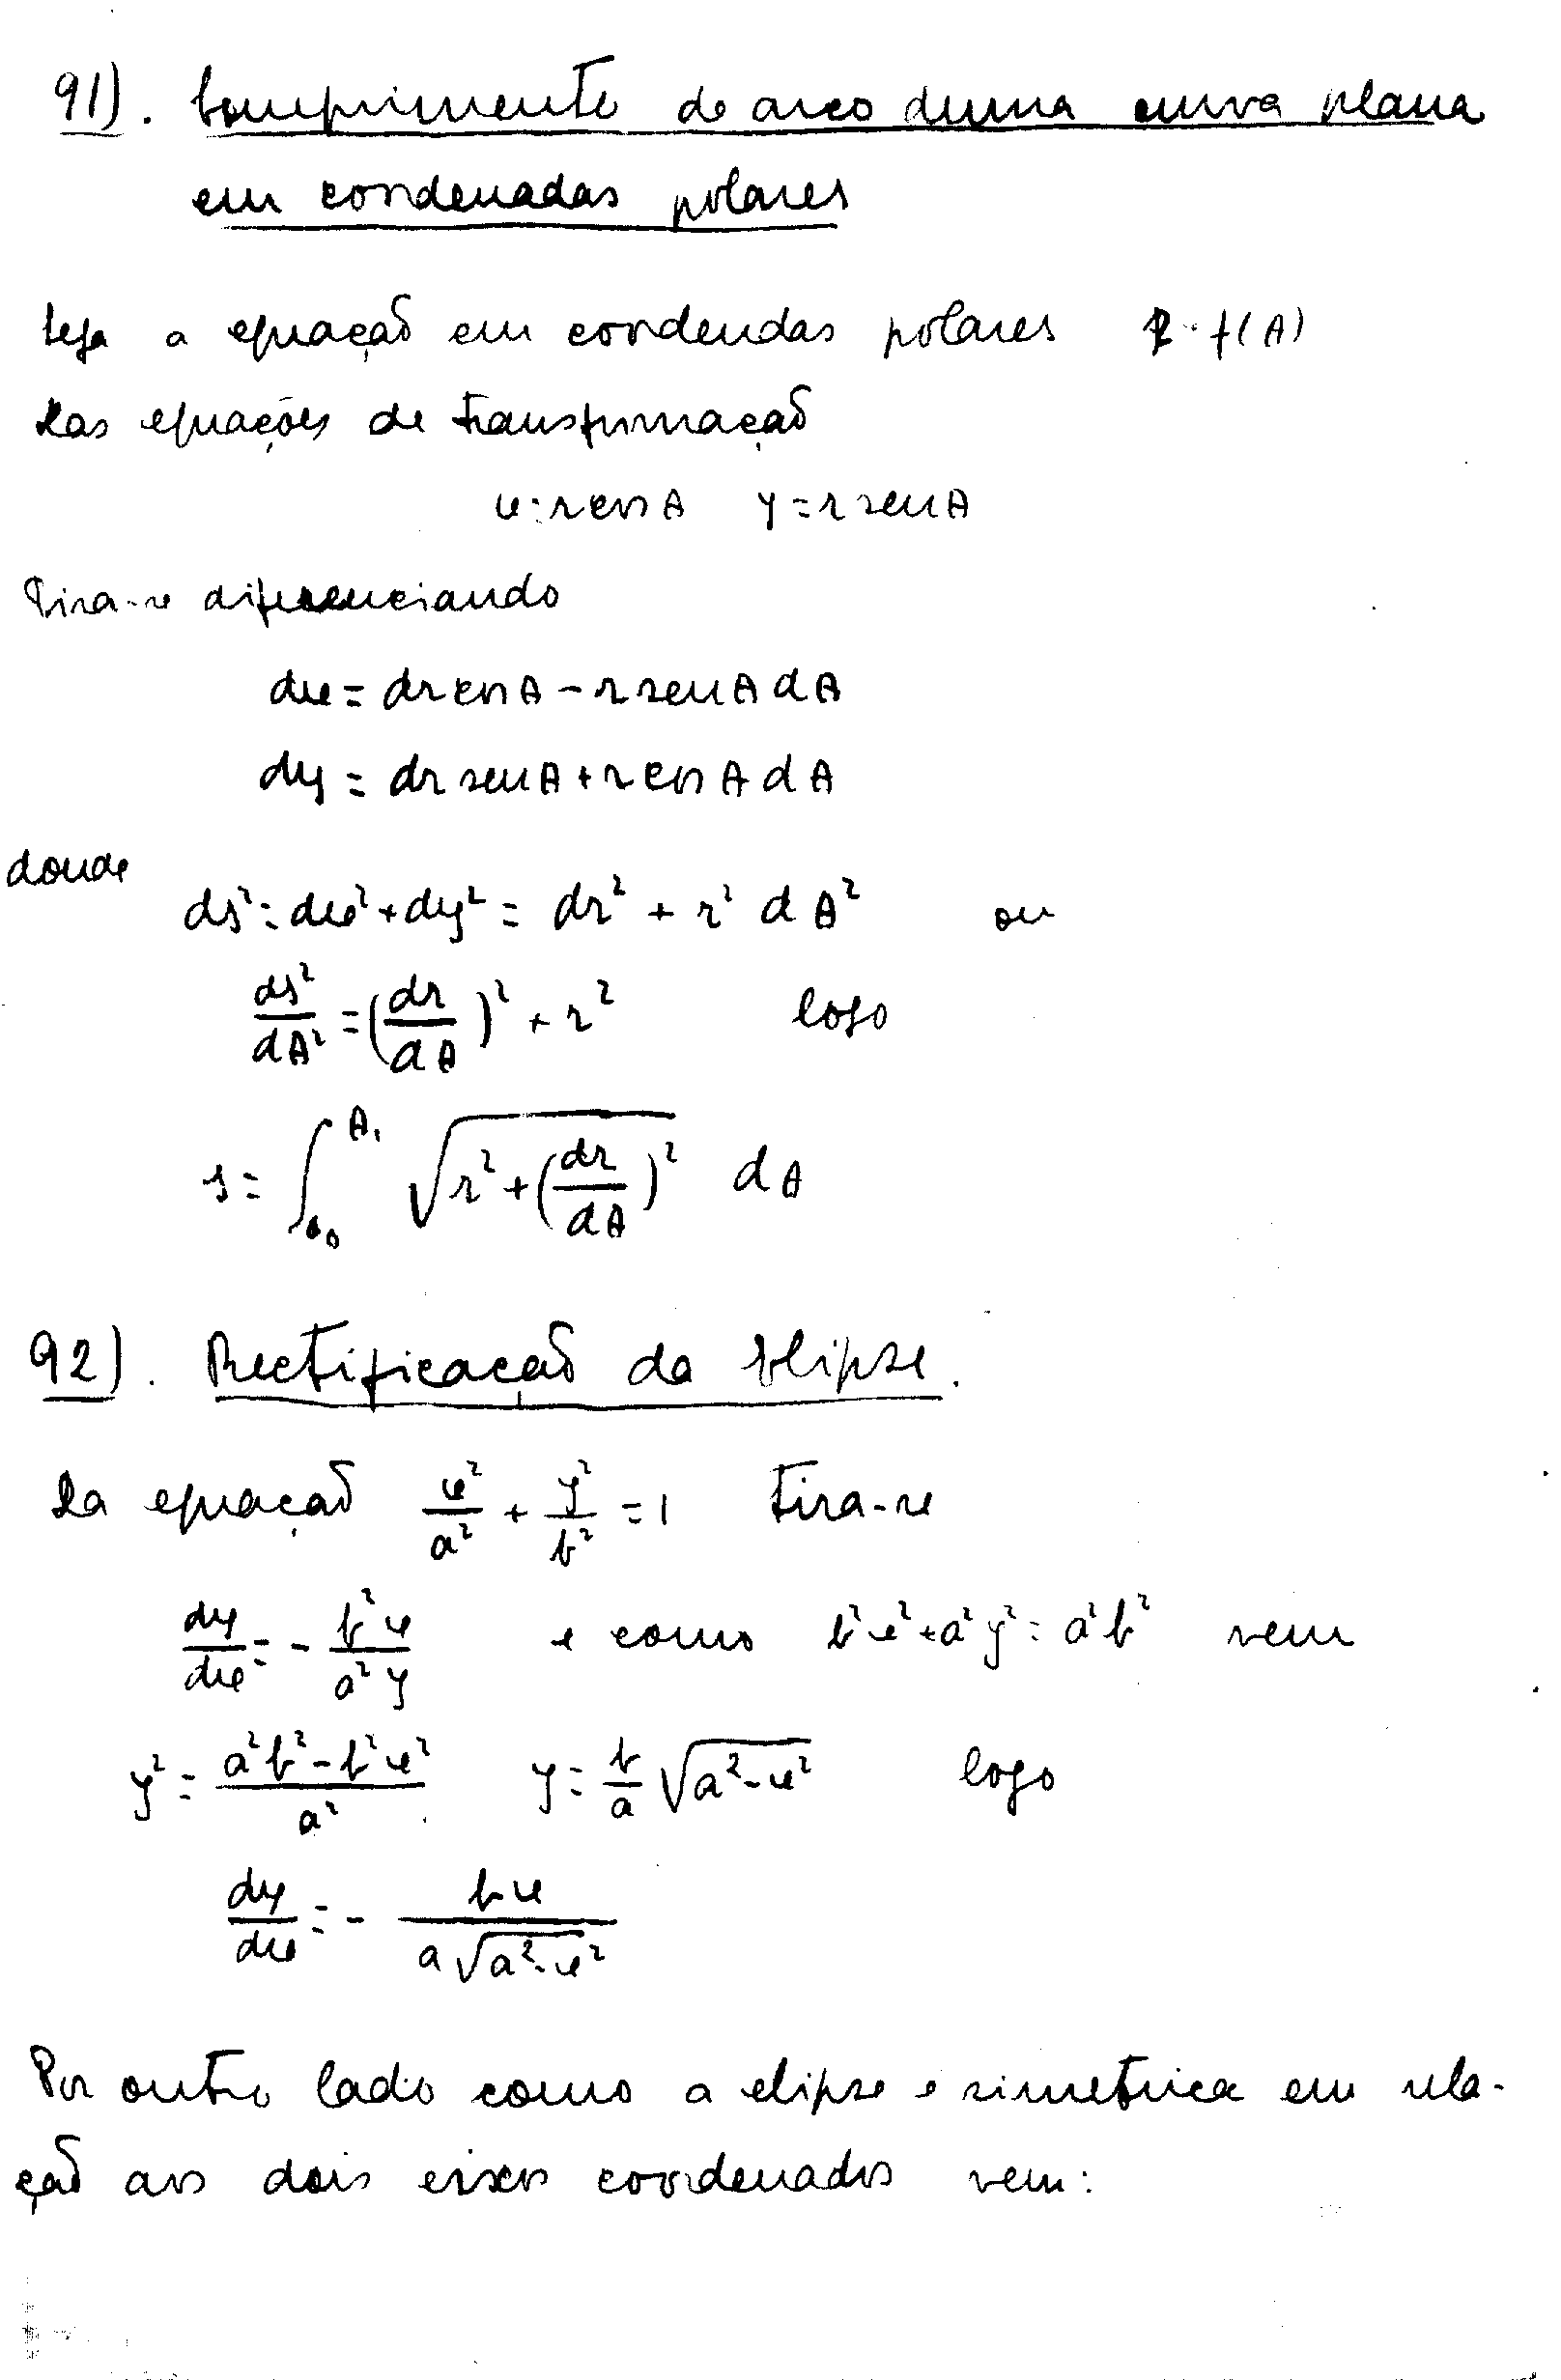 91). Comprimento do arco duma curva plana
em coordenadas polares
Seja a equação em coordendas polares r = f(θ)
Das equações de transformação
x = r cos θ y = r sen θ
Tira-se diferenciando
dx = dr cos θ - r sen θ dθ
dy = dr sen θ + r cos θ dθ
donde
ds² = dx² + dy² = dr² + r² dθ² ou
ds²/dθ² = (dr/dθ)² + r² logo
s = ∫_θ₀^θ₁ √(r² + (dr/dθ)²) dθ
92). Rectificação da Elipse.
Da equação x²/a² + y²/b² = 1 tira-se
dy/dx = - b²x/a²y e como b²x² + a²y² = a²b² vem
y² = (a²b² - b²x²)/a² y = b/a √(a² - x²) logo
dy/dx = - bx/(a√(a² - x²))
Por outro lado como a elipse e simetrica em rela-
ção aos dois eixos coordenados vem: